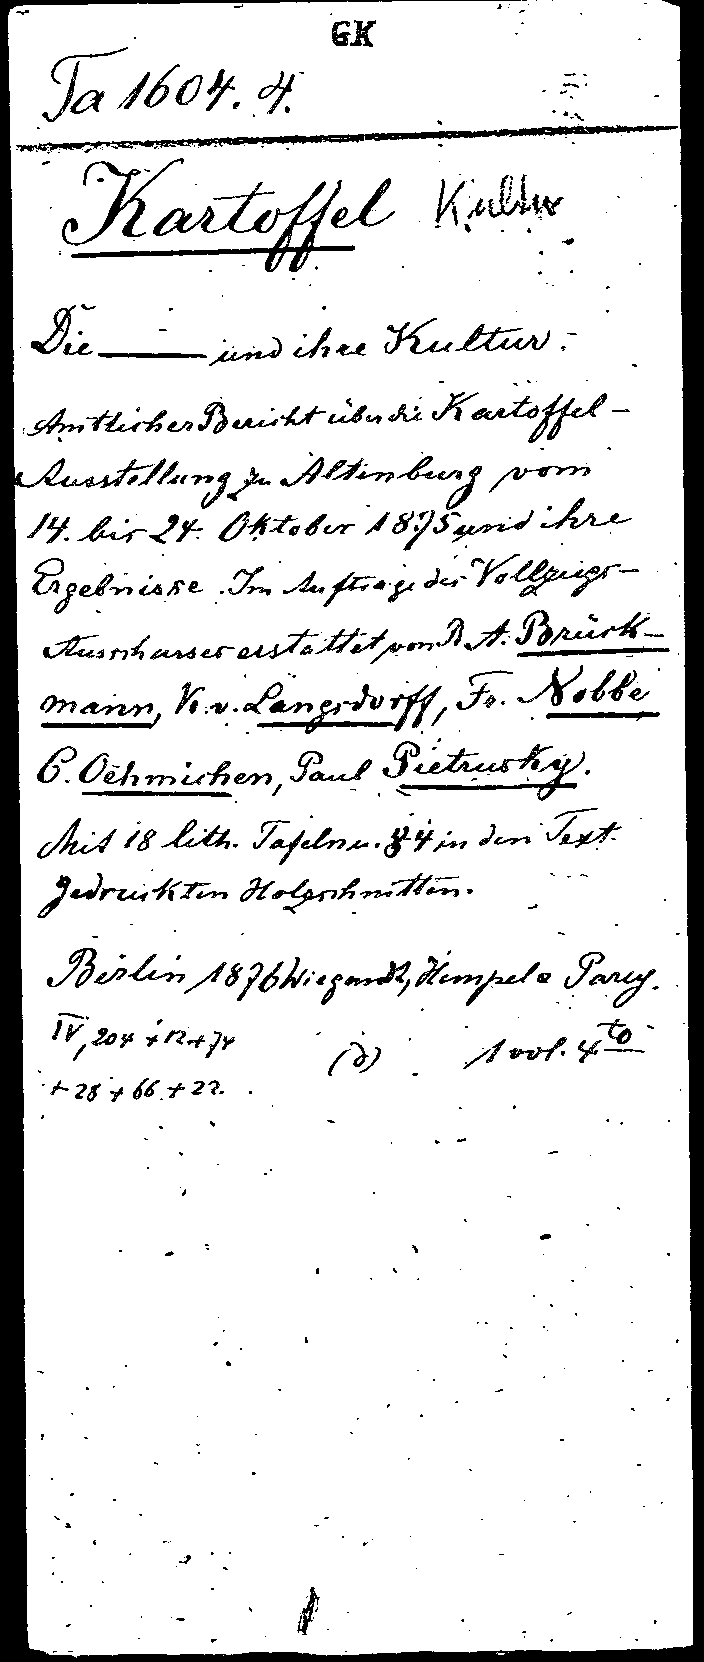 GK
Ta 1604. 4.
Kartoffel Kultur
Die ——— und ihre Kultur.
Amtlicher Bericht über die Kartoffel-
Ausstellung zu Altenburg vom
14. bis 24. Oktober 1875 und ihre
Ergebnisse. Im Auftrage des Vollzugs-
Ausschusses erstattet von A. Brück-
mann, K. v. Langsdorff, Fr. Nobbe
C. Oehmichen, Paul Pietrusky.
Mit 18 lith. Tafeln u. 4 in den Text
gedruckten Holzschnitten.
Berlin 1876 Wiegandt, Hempel & Parey.
IV, 204 + 12 + 74
+ 28 + 66 + 22.
1 vol. 4to